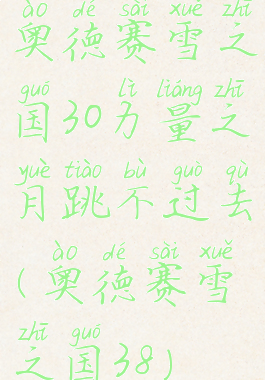 ào dé sài xuě zhī
奥德赛雪之
guó lì liáng zhī
国30力量之
yuè tiào bù guò qù
月跳不过去
ào dé sài xuě
(奥德赛雪
zhī guó
之国38)